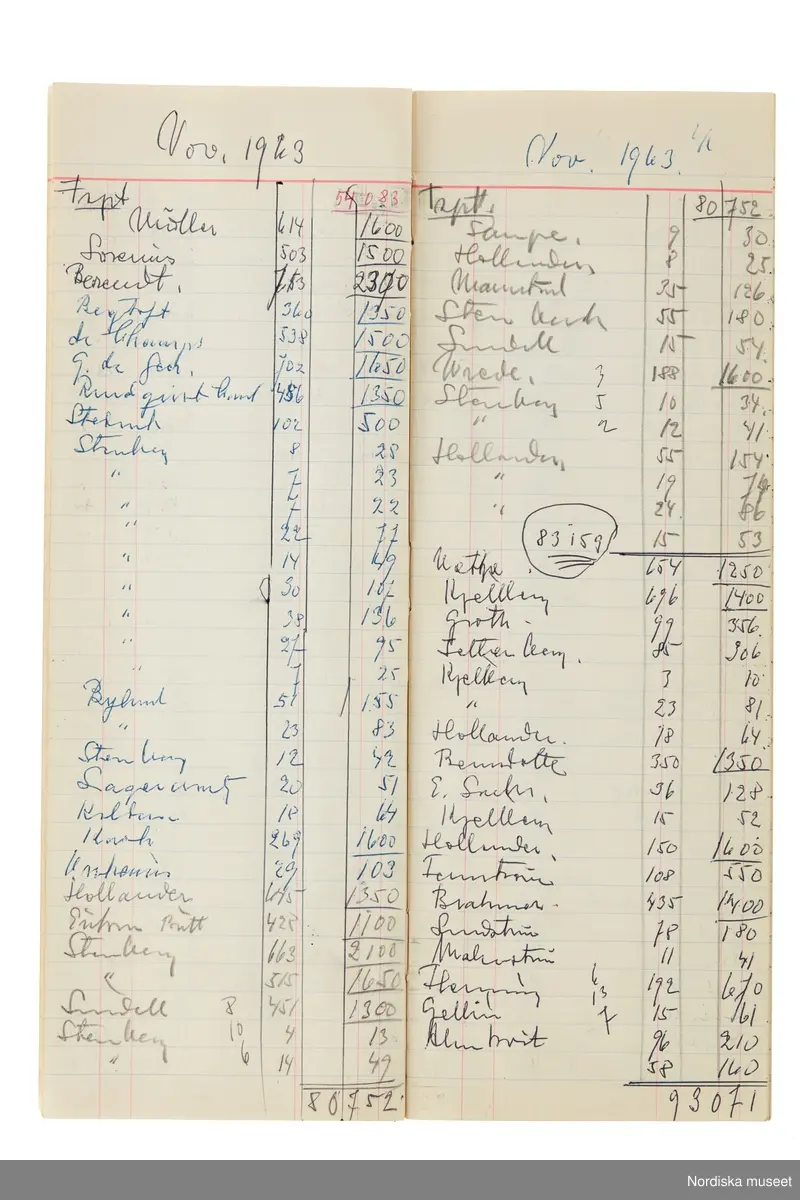 Nov. 1943
Trpt 54 083
Müller 614 1600
Sorenius 503 1500
Berendt. 753 2300
360 1350
de Champs 538 1500
G. de Geer. 702 1650
Rundquist 456 1350
102 500
Stenberg 8 28
" 7 23
" 7 22
" 22 77
" 14 49
" 30 107
" 38 136
" 27 95
" 7 25
Bylund 51 155
" 23 83
Stenberg 12 42
Lagercrantz 20 51
18 64
269 1600
29 103
Hollander 645 1350
428 1100
Stenberg 663 2100
" 515 1650
Sundell 8 451 1300
Stenberg 10 4 13
" 6 14 49
80 752
Nov. 1943.
Trpt. 80 752
9 30
Hollander 8 25
35 126
55 180
Sundell 15 54
Wrede. 3 188 1600
Stenberg 5 10 34
" 2 12 41
Hollander 55 154
" 19 74
" 24 86
83 159 15 53
654 1250
Kjellberg 696 1400
Groth 99 356
Zetterberg. 85 306
Kjellberg 3 10
" 23 81
Hollander. 18 64
Bernadotte 350 1350
E. Sachs. 36 128
Kjellberg 15 52
Hollander. 150 1600
108 550
435 1400
Sundström 78 180
Malmström 11 41
Fleming 6 13 192 670
Gellin 7 15 61
Almkvist 96 210
58 160
93071
Nordiska museet